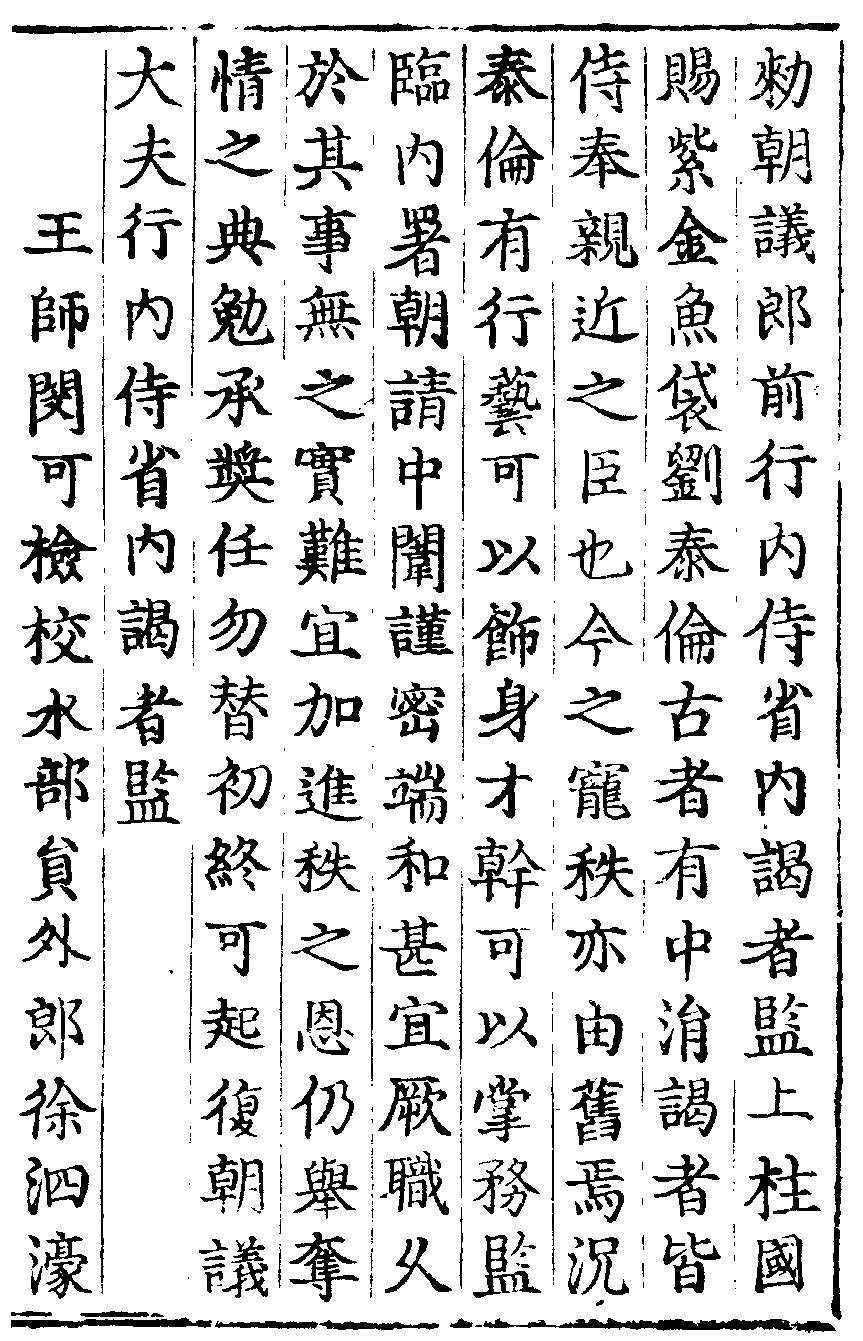 勑朝議郎前行內侍省內謁者監上柱國
賜紫金魚袋劉泰倫古者有中涓謁者皆
侍奉親近之臣也今之寵秩亦由舊焉況
泰倫有行藝可以飾身才幹可以掌務監
臨內署朝請中闈謹密端和甚宜厥職乆
於其事無之實難宜加進秩之恩仍舉奪
情之典勉承奬任勿替初終可起復朝議
大夫行內侍省內謁者監
王師閔可檢校水部貟外郎徐泗濠